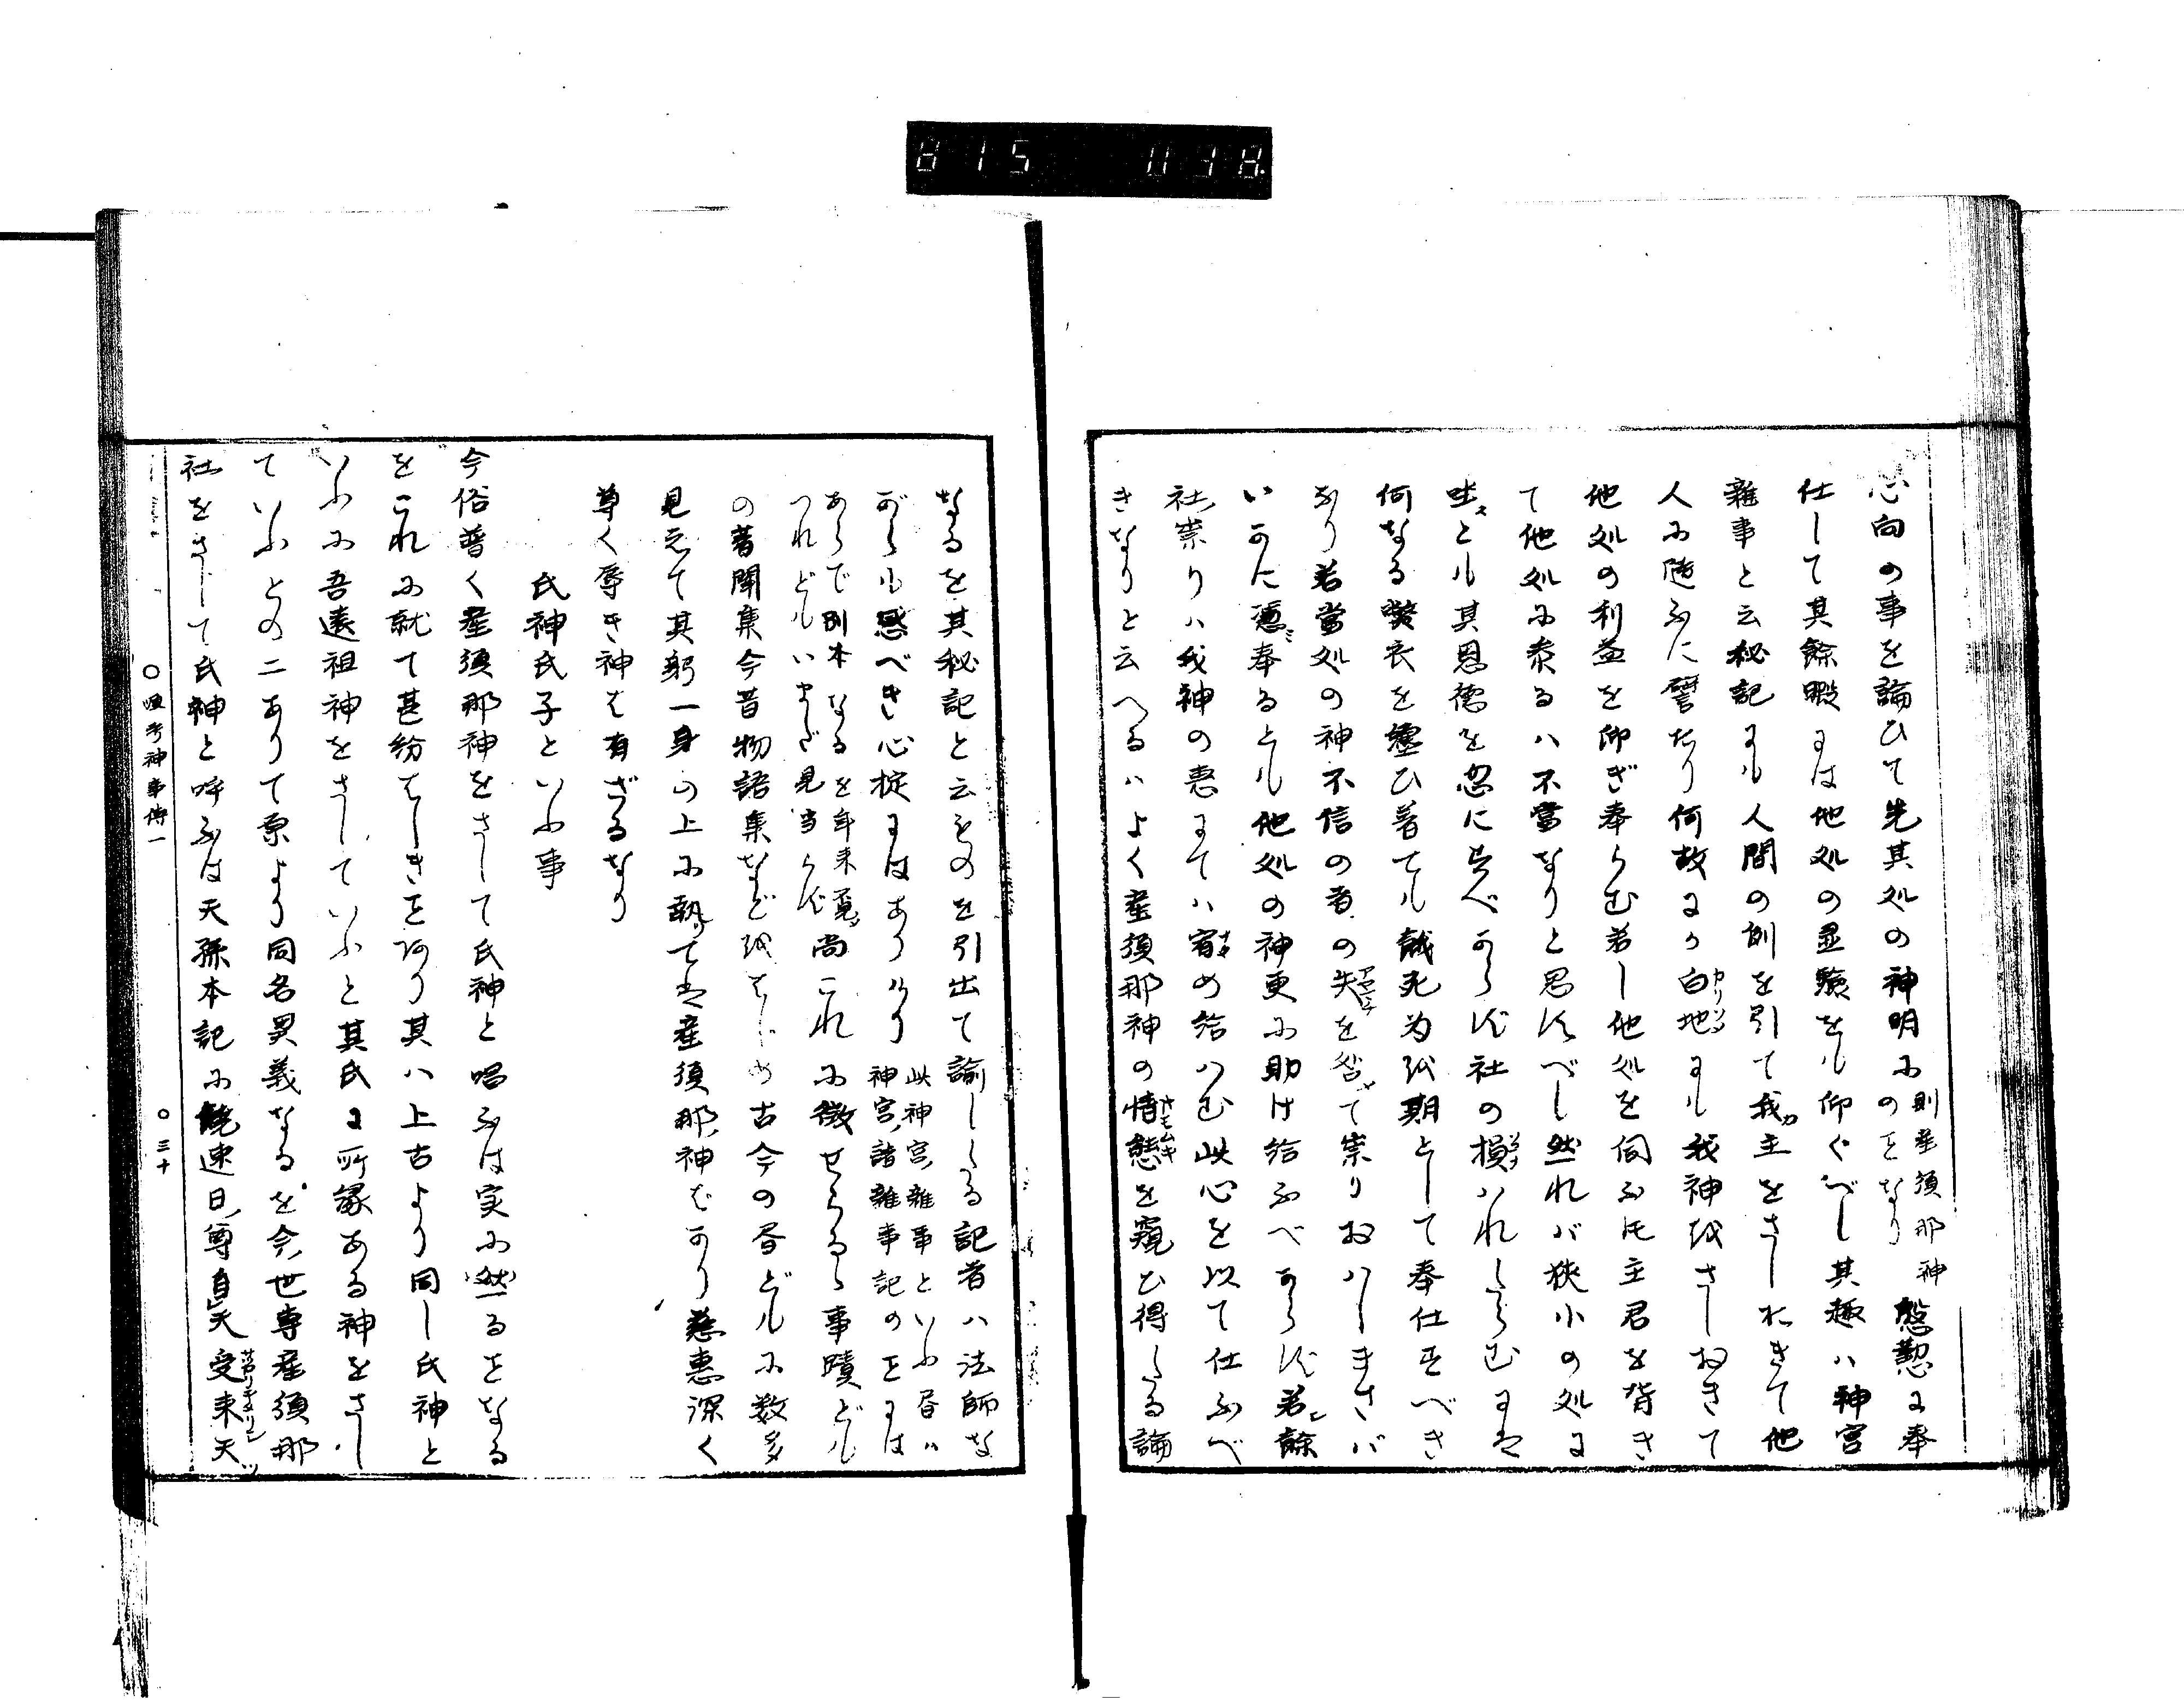 心向の事を論ひて先其処の神明尓則産須那神のことなり慇懃に奉
仕して其餘暇には他処の显験をも仰ぐべし其趣ハ神宮
雜事と云秘記にも人間の訓を引て我主をさしおきて他
人尓随ふに譬たり何故にか白地にも我神をさしおきて
他処の利益を仰ぎ奉らむ若し他処を伺ふ毛主君を背き
て他処尓参るハ不當なりと思ほすべし然れバ狭小の処に
坐とも其恩徳を忽に春べからず社の損ハれたらむには
何なる弊衣を纏ひ着ても餓死为を期として奉仕すべき
なり若當処の神不信の者の失を咎て祟りおハしまさバ
いかに憑奉るとも他処の神更尓助け給ふべからず若餘
社祟りハ我神の恵にてハ宥め給ハむ此心を以て仕ふべ
きなりと云へるハよく産須那神の情態を窺ひ得たる論
なるを其秘記と云ものを引出て諭したる記者ハ法師な
がらも感べき心掟にはありけり此神宮雜事といふ書ハ
神宮諸雜事記のことには
あらで別本なるを年来覓
つれどもいまだ見当らず尚これ尓徴せらるゝ事蹟ども
の著聞集今昔物語集などをはじめ古今の書ども尓数多
見えて其躬一身の上尓執ては産須那神ばかり慈惠深く
尊く辱き神は有ざるなり
氏神氏子といふ事
今俗普く産須那神をさして氏神と唱ふは実尓然ることなる
をこれ尓就て甚紛はしきことあり其ハ上古より同し氏神と
いふ尓吾遠祖神をさしていふと其氏に所縁ある神をさし
ていふとの二ありて原より同名異義なるを今世専産須那
社をさして氏神と呼ふは天孫本記尓饒速日尊自天受来天
○顕考神事傳一 ○三十
815